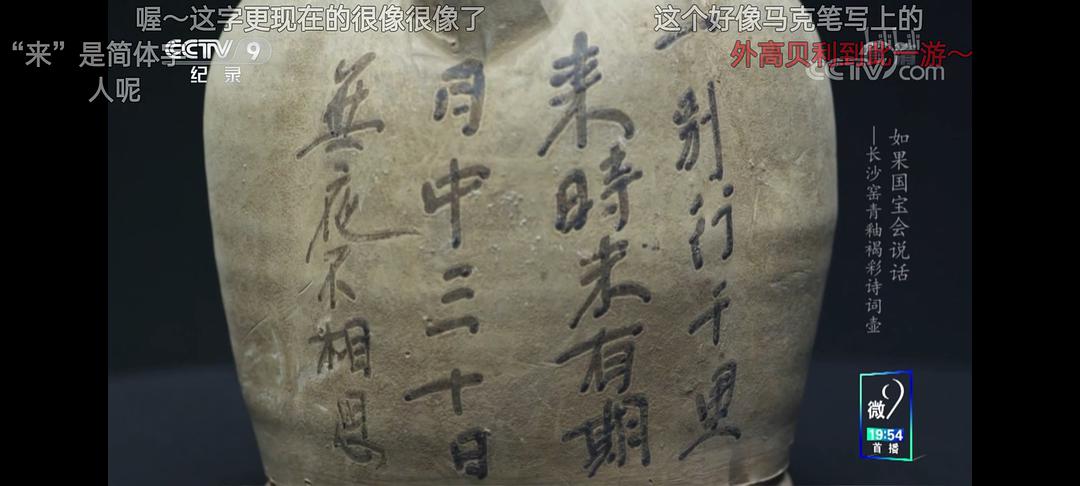 喔～这字更现在的很像很像了
这个好像马克笔写上的
“来”是简体字
人呢
外高贝利到此一游～
CCTV 9
纪录
CCTV.com
一别行千里
来時未有期
月中三十日
無夜不相思
如果国宝会说话
—长沙窑青釉褐彩诗词壶
微9
19:54
首播